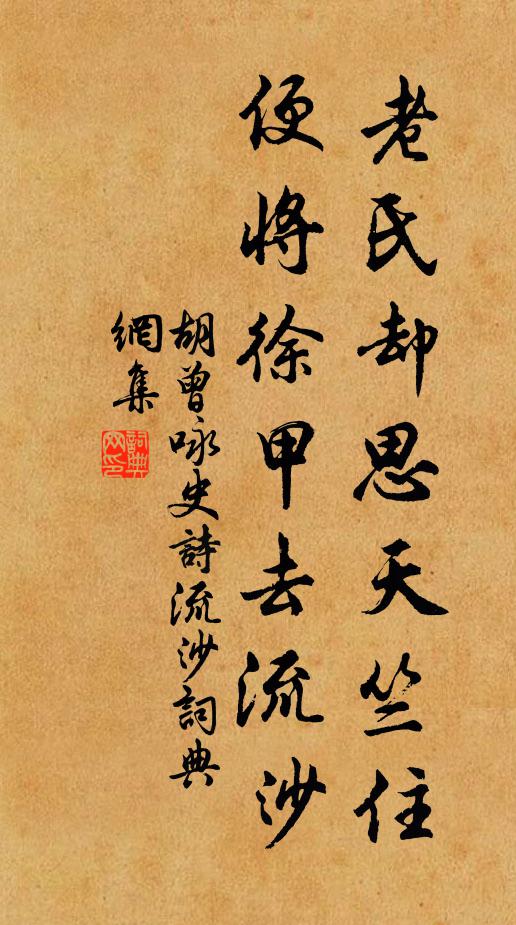 老氏却思天竺住
便將徐甲去流沙
胡曾咏史詩流沙詞典
網集
詞典
网印